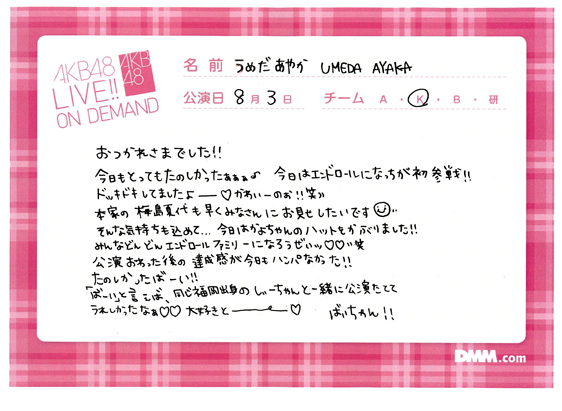 AKB48
LIVE!!
ON DEMAND
AKB
48
名前 うめだあやか UMEDA AYAKA
公演日 8月3日 チーム A・K・B・研
おつかれさまでした!!
今日もとってもたのしかったぁぁぁ♪ 今日はエンドロールになっちが初参戦!!
ドッキドキしてました♪ー♡かわいーのぉ!!笑〃
本家の梅島夏代も早くみなさんにお見せしたいです
そんな気持ちも込めて… 今日はかよちゃんのハットをかぶりました!!
みんなどんどんエンドロールファミリーになろうぜぃッッ♡♡笑
公演おわった後の達成感が今日もハンパなかった!!
たのしかったばーい!!
「ばーい」と言えば、同じ福岡出身のしぃーちゃんと一緒に公演たてて
うれしかったなぁ♡♡ 大好きと――♡ ばいちゃん!!
DMM.com